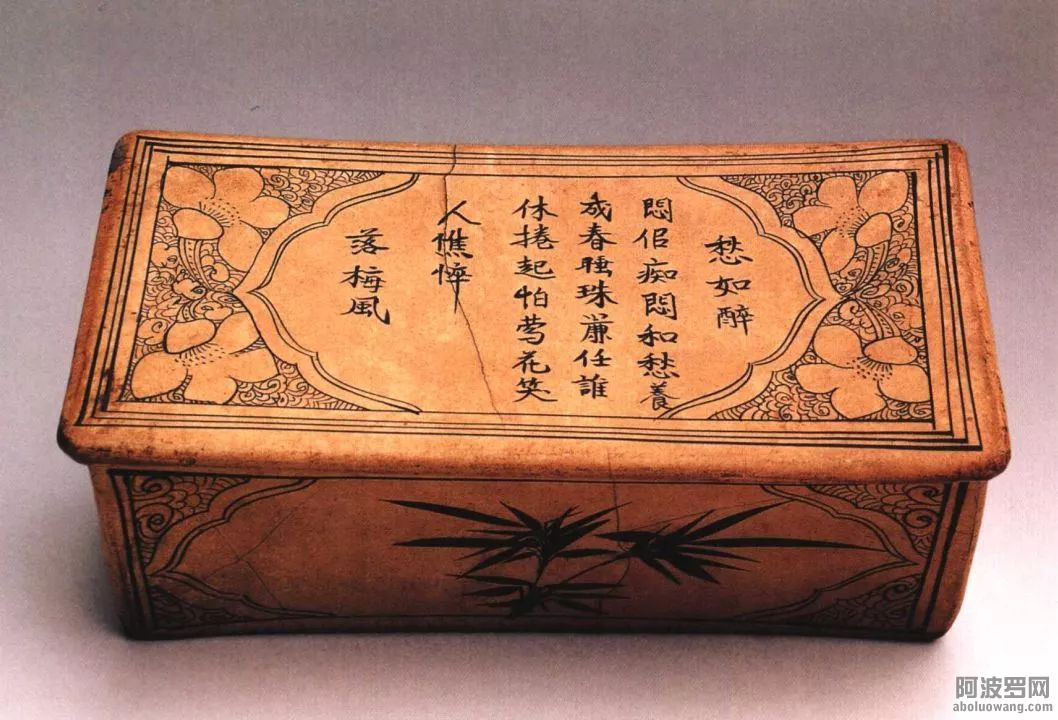 愁如醉
悶佀痴悶和愁養
成春睡珠簾任誰
休捲起怕鶯花笑
人憔悴
落梅風
阿波罗网
aboluowang.com